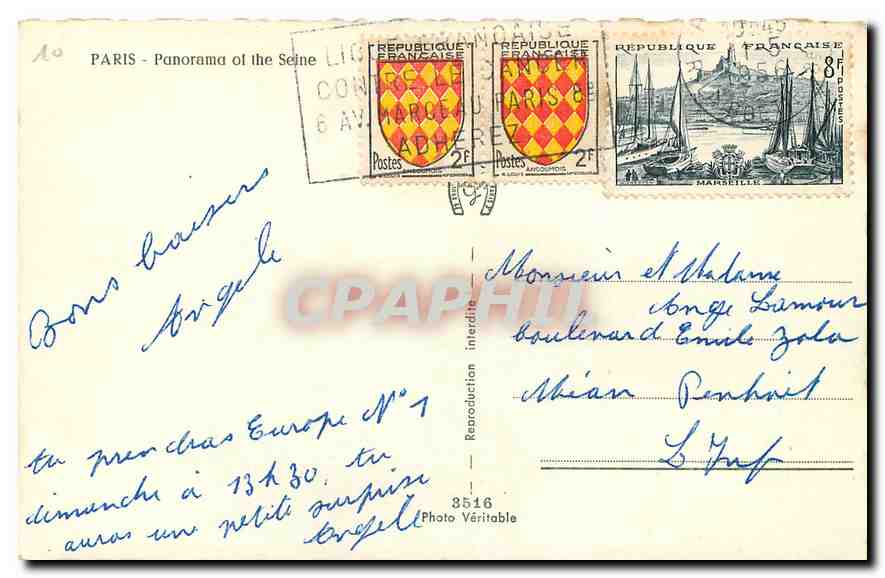 10
PARIS - Panorama of the Seine
LIGUE FRANÇAISE
CONTRE LE CANCER
6 AV. MARCEAU PARIS 8e
ADHEREZ
REPUBLIQUE
FRANÇAISE
Postes 2F
ANGOUMOIS
REPUBLIQUE
FRANÇAISE
Postes 2F
ANGOUMOIS
REPUBLIQUE FRANÇAISE
8F
POSTES
MARSEILLE
1956
Bons baisers
Angele
tu prendras Europe N°1
dimanche à 13h30. tu
auras une petite surprise
Angele
CPAPHIL
Reproduction interdite
3516
Photo Véritable
Monsieur et Madame
Ange Lamour
boulevard Emile Zola
Méan Penhoit
L Inf